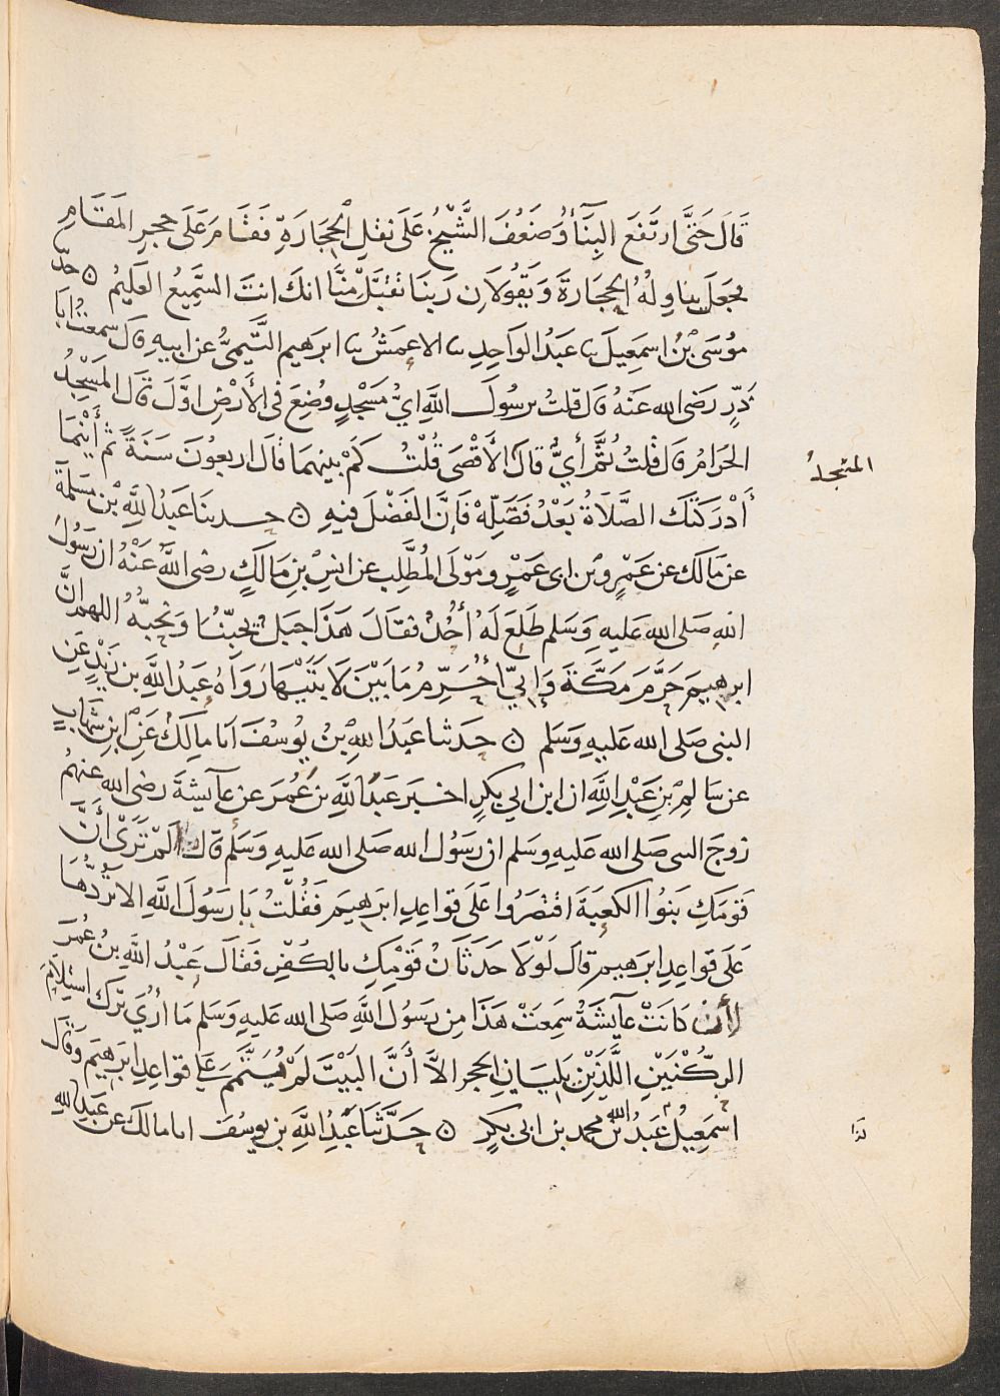 قَالَ حَتَّى ارتَفَعَ البِنَآءُ وَضَعُفَ الشَّيْخُ عَلَى نقلِ الْحِجَارَةِ فَقَامَ عَلَى حجرِ المَقَامِ
فجعَلَ يناوِلُهُ الحِجَارَةَ وَيَقُولَانِ رَبنَا تَقَبَّلْ مِنَّا انكَ انتَ السَّمِيعُ العَلِيمُ ه حدثنا
مُوسَى بْنُ اسمَعِيلَ ثنا عبدُ الوَاحِدِ ثنا الاعمَشُ ثنا ابرهيم التَّيمِيُّ عن ابيهِ قال سمعتُ ابا
ذَرٍّ رضى الله عنهُ قال قلتُ يرسُولَ اللهِ ايُّ مَسْجِدٍ وُضِعَ فى الأَرْضِ اوَّلَ قَالَ المَسْجِدُ
الحَرَامُ قال قلتُ ثُمَّ أَيُّ قالَ الأَقْصَى قُلْتُ كَمْ بينهمَا قَالَ اربعُونَ سَنَةً ثم أَيْنَمَا
المسجدُ
أَدْرَكَتْكَ الصَّلَاةُ بَعْدُ فَصَلِّهْ فَإِنَّ الفَضْلَ فِيهِ ه حدثنا عَبدُ اللهِ بْن مَسْلَمَةَ
عن مَالك عن عَمْرِو بْن ابى عَمْرٍو مَوْلَى المُطَّلِب عن انسِ بْنِ مَالكٍ رضى اللهُ عَنْهُ ان رَسُولَ
اللهِ صَلى الله عَليهِ وَسَلم طَلَعَ لَهُ أُحُدٌ فقَالَ هَذَا جبَلٌ يحِبّنَا وَنُحِبُّهُ اللهم انَّ
ابرهيمَ حَرَّمَ مَكَّةَ وَإِنِّي أُحَرِّمُ مَا بَيْنَ لَابَتَيْهَا رَوَاهُ عَبدُ اللهِ بن زَيْدٍ عَنِ
النبى صَلى الله عَليهِ وَسَلم ه حَدثنا عَبدُ اللهِ بْنُ يُوسُفَ انا مالِكٌ عَنِ ابنِ شهَابٍ
عن سَالِمِ بْنِ عَبْدِ اللهِ ان ابن ابي بكرٍ اخبَر عَبدَ اللهِ بن عُمَرَ عن عآيشةَ رضى الله عنهُم
زوجَ النبى صَلى الله عَليهِ وسَلم ان رَسُولَ الله صَلى الله عَليهِ وَسَلَم قَال أَلَمْ تَرَيْ أَنَّ
قَوْمَكِ بَنُوا الكَعبَةَ اقتَصَرُوا عَلَى قواعِدِ ابرَهِيمَ فَقُلْتُ يَا رَسُولَ اللهِ الا تَرُدُّهَا
عَلَى قواعِدِ ابرَهيم قالَ لَوْلَا حَدَثَانُ قَوْمِكِ بالكُفْرِ فَقَالَ عَبْدُ اللهِ بنُ عُمَرَ
لأن كَانَتْ عآيشَةُ سَمِعَتْ هَذَا مِن رَسُولِ اللهِ صَلى الله عَليهِ وَسَلم مَا أُرَى تَرْكَ استِلَامَ
الرُّكْنَيْنِ اللَّذَيْنِ يَلِيَانِ الحجر الاَّ أَنَّ البَيْتَ لَمْ يُتَمَّمْ عَلَى قواعِدِ ابرَهِيمَ وَقَالَ
اسمَعِيلُ عَبْدُ الله بْنُ محمد بن ابى بكرٍ ه حَدَّثَنَا عَبدُ اللهِ بن يوسُفَ انا مَالك عن عَبدِ اللهِ